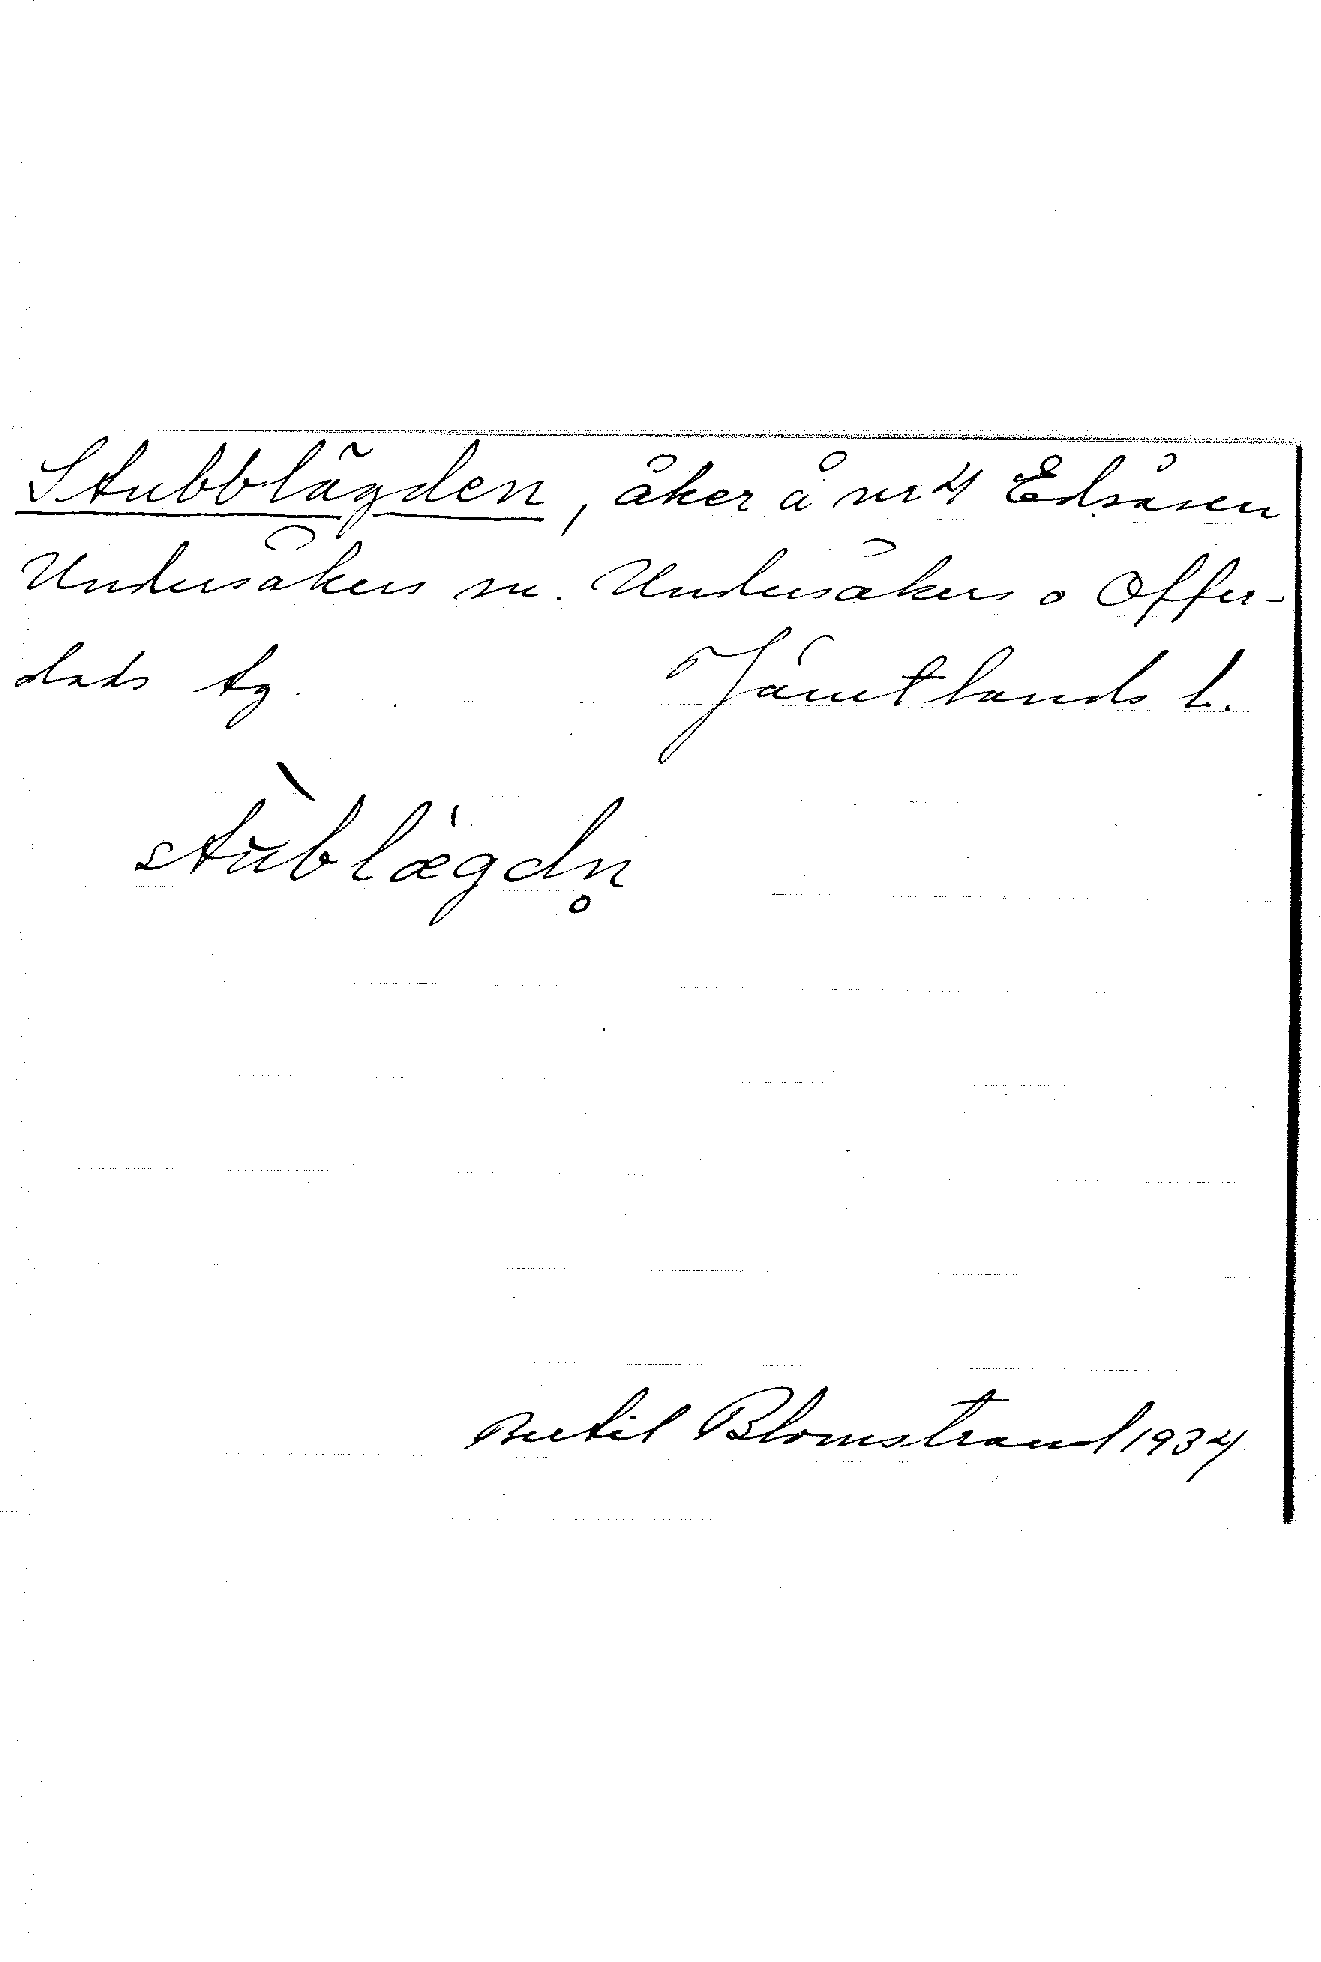 Stubblägden, åker å nr 4 Edsåsen
Undersåkers sn. Undersåkers o Offer-
dals tg. Jämtlands l.
stùblǽgdn̥
Bertil Blomstrand 1934